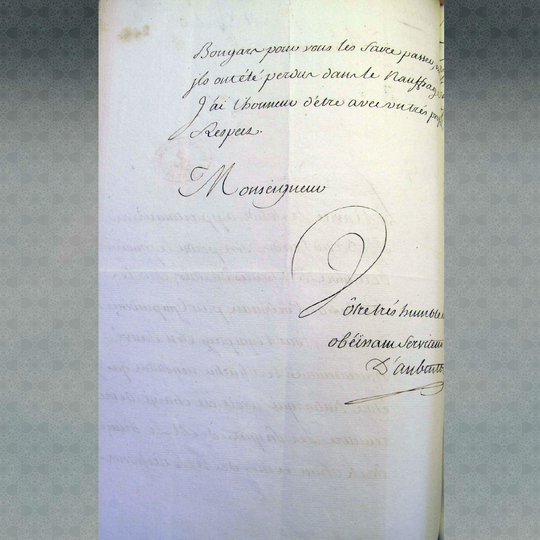 Bougars pour vous les faire passer,
jls ont été perdus dans le Nauffrage
J'ai l'honneur d'être avec un très
Respect.
Monseigneur
Vôtre très humble
obéissant Serviteur